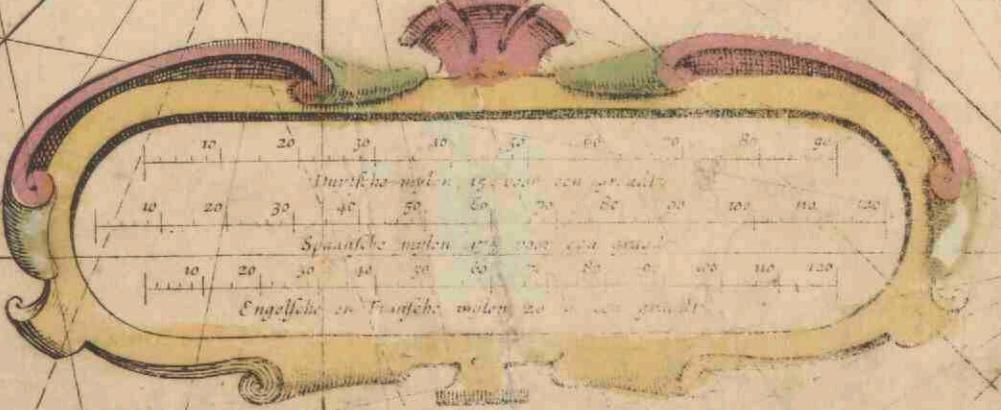 10 20 30 40 50 60 70 80 90
Duytsche mylen 15 voor een graadt
10 20 30 40 50 60 70 80 90 100 110 120
Spaansche mylen 17½ voor een graadt
10 20 30 40 50 60 70 80 90 100 110 120
Engelsche en Fransche mylen 20 een graadt